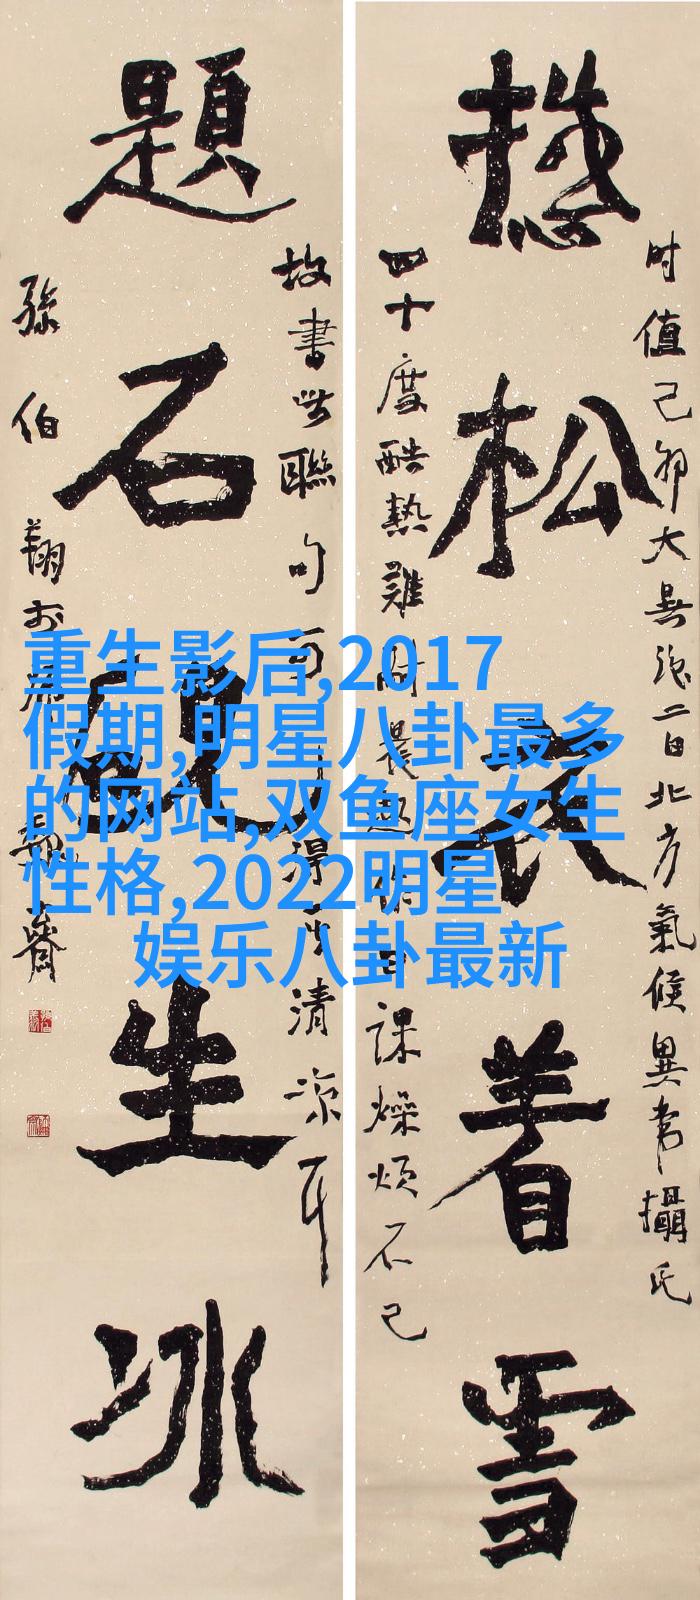 松衣着雪
时值己卯大暑後二日北方氣候異常攝氏
四十度酷熱難耐晨起 日課燥煩不已
題石砚生冰
故書此聯句 得 清凉耳
孫伯翔於 齋
重生影后,2017
假期,明星八卦最多
的网站,双鱼座女生
性格,2022明星
娱乐八卦最新